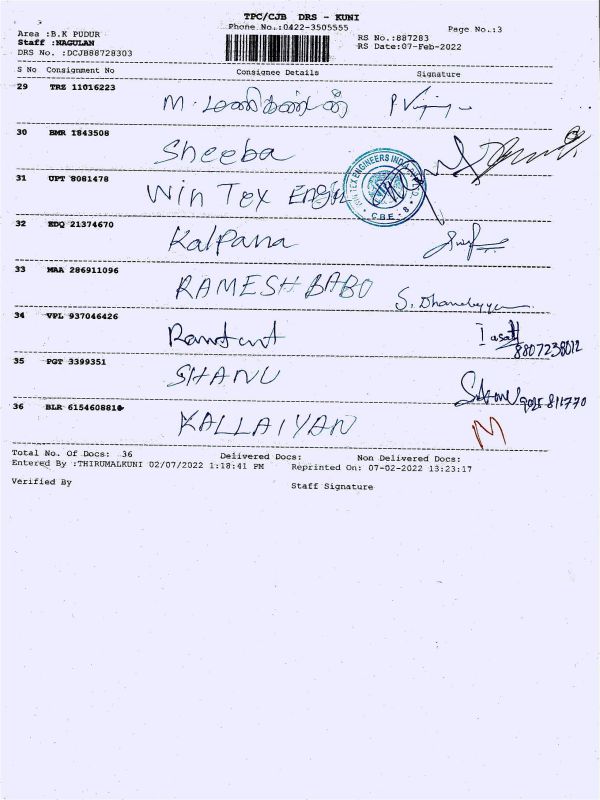 TPC/CJB DRS - KUNI
Phone No.:0422-3505555
Page No.:3
Area :B.K PUDUR
Staff :NAGULAN
DRS No. :DCJB88728303
RS No.:887283
RS Date:07-Feb-2022
S No Consignment No Consignee Details Signature
29 TRZ 11016223 M. மணிகண்டன்
30 BMR 1843508 Sheeba
31 UPT 8081478 Win Tex Engg
32 KDQ 21374670 Kalpana
33 MAA 286911096 RAMESH BABO
34 VPL 937046426 8807238012
35 PGT 3399351 SHANU
36 BLR 6154608810 KALLAIYAN M
Total No. Of Docs: 36 Delivered Docs: Non Delivered Docs:
Entered By :THIRUMALKUNI 02/07/2022 1:18:41 PM Reprinted On: 07-02-2022 13:23:17
Verified By Staff Signature